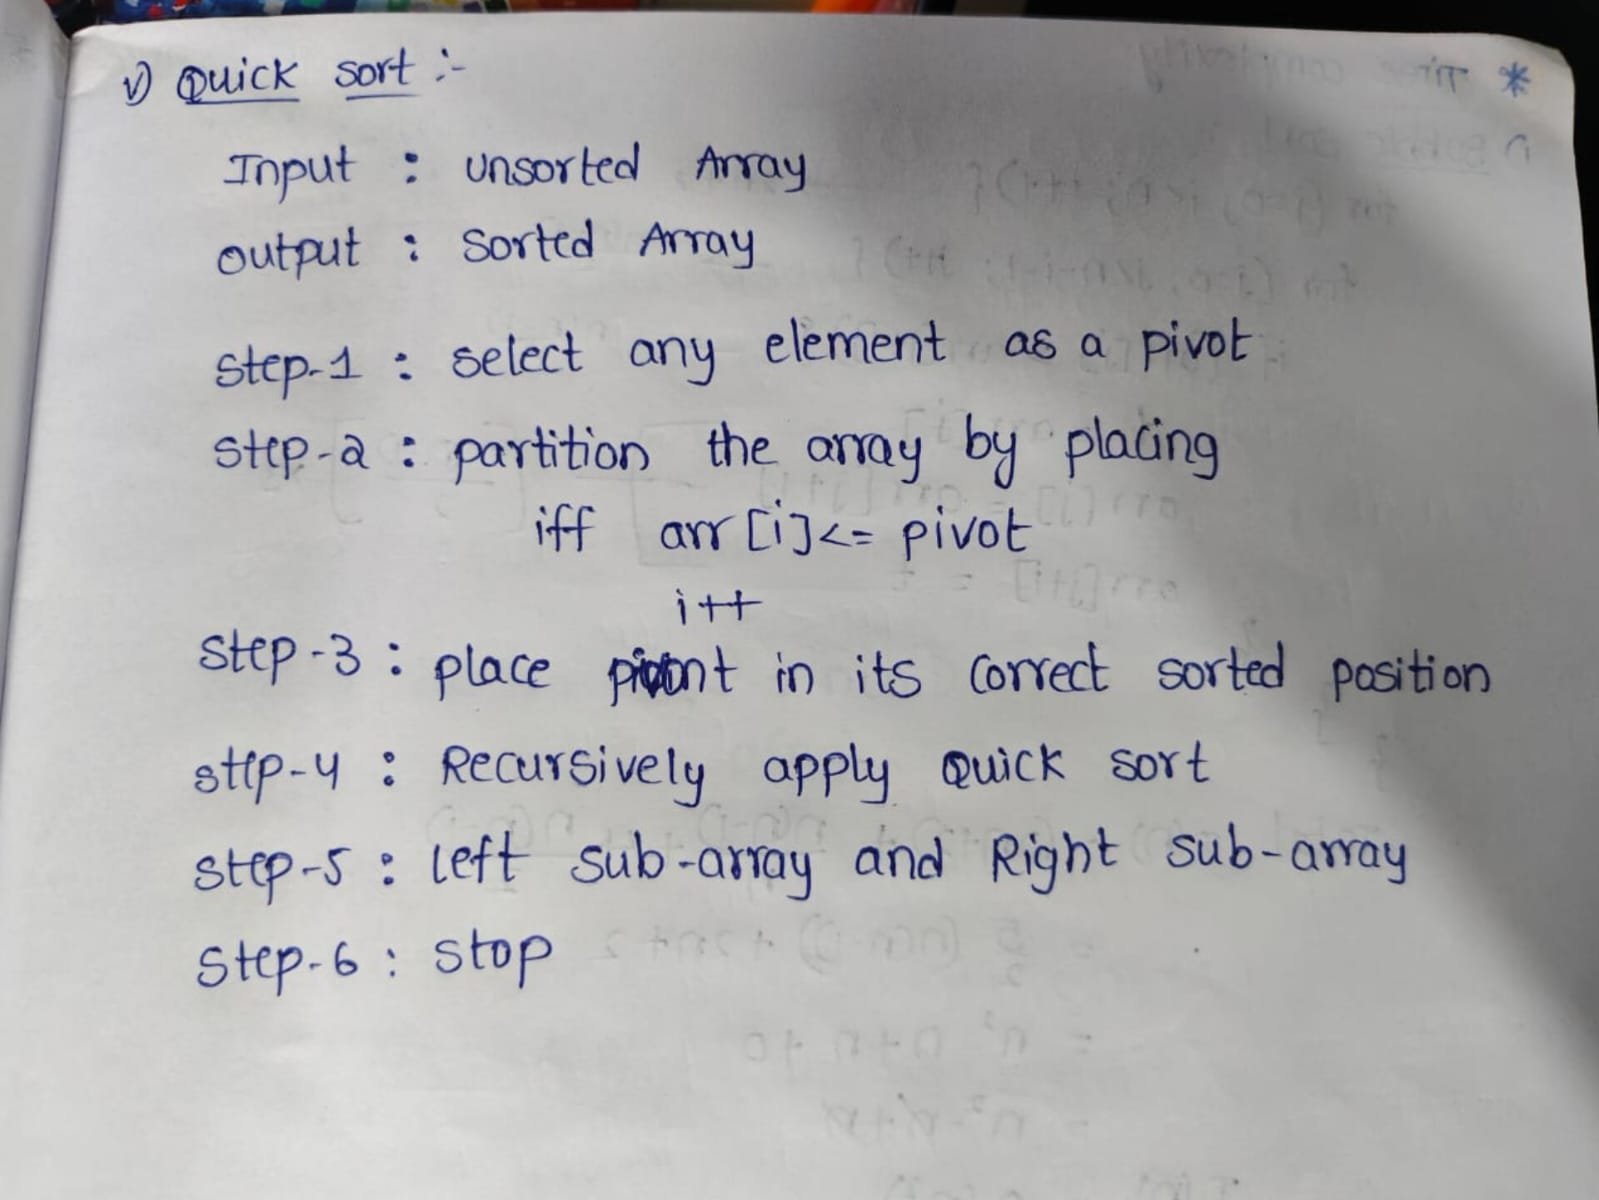 v) Quick sort :-
Input : unsorted Array
output : Sorted Array
step-1 : select any element as a pivot
step-2 : partition the array by placing
iff arr[i]<= pivot
i++
step-3 : place in its correct sorted position
step-4 : Recursively apply Quick sort
step-5 : left sub-array and Right sub-array
step-6 : stop